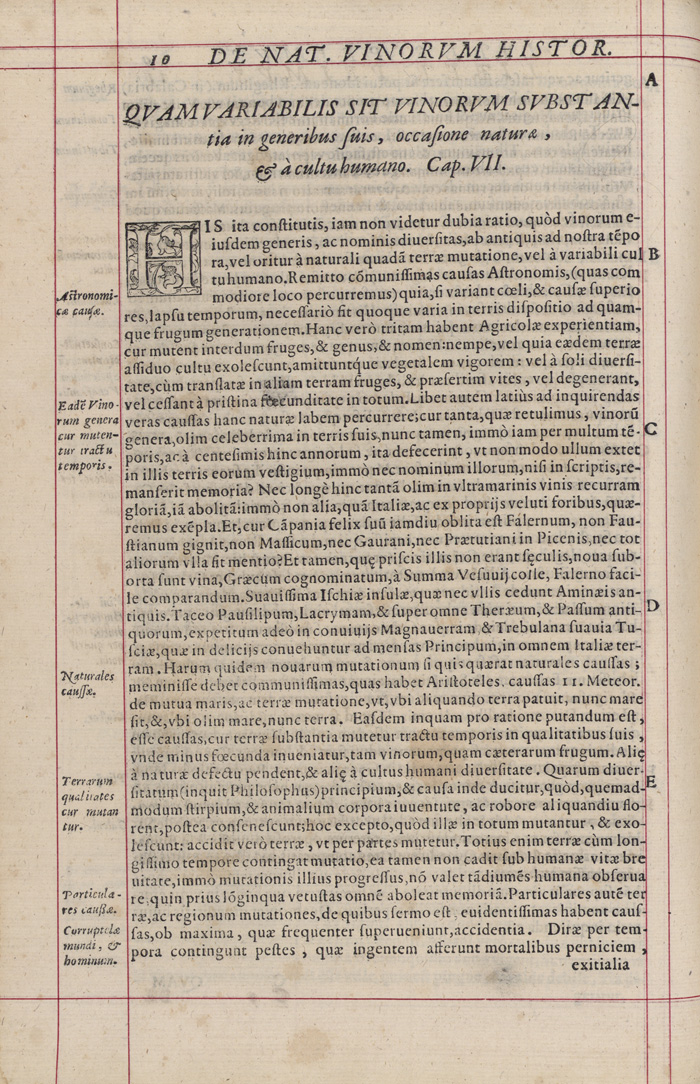 10 DE NAT. VINORVM HISTOR.
A
QVAM VARIABILIS SIT VINORVM SVBSTAN-
tia in generibus ſuis, occaſione naturæ,
& à cultu humano. Cap. VII.
HIS ita conſtitutis, iam non videtur dubia ratio, quòd vinorum e-
iuſdem generis, ac nominis diuerſitas, ab antiquis ad noſtra tẽpo
B
ra, vel oritur à naturali quadã terræ mutatione, vel à variabili cul
tu humano. Remitto cõmuniſſimas cauſas Aſtronomis, (quas com
Aſtronomi-
cæ cauſæ.
modiore loco percurremus) quia, ſi variant cœli, & cauſæ ſuperio
res, lapſu temporum, neceſſariò fit quoque varia in terris diſpoſitio ad quam-
que frugum generationem. Hanc verò tritam habent Agricolæ experientiam,
cur mutent interdum fruges, & genus, & nomen: nempe, vel quia eædem terræ
aſſiduo cultu exoleſcunt, amittuntq́ue vegetalem vigorem: vel à ſoli diuerſi-
tate, cùm tranſlatæ in aliam terram fruges, & præſertim vites, vel degenerant,
Eadẽ Vino-
rum genera
cur muten-
tur tractu
temporis.
vel ceſſant à priſtina fœcunditate in totum. Libet autem latiùs ad inquirendas
veras cauſſas hanc naturæ labem percurrere; cur tanta, quæ retulimus, vinorũ
C
genera, olim celeberrima in terris ſuis, nunc tamen, immò iam per multum tẽ-
poris, ac à centeſimis hinc annorum, ita defecerint, vt non modo ullum extet
in illis terris eorum veſtigium, immò nec nominum illorum, niſi in ſcriptis, re-
manſerit memoria? Nec longè hinc tantã olim in vltramarinis vinis recurram
gloriã, iã abolitã: immò non alia, quã Italiæ, ac ex proprijs veluti foribus, quæ-
remus exẽpla. Et, cur Cãpania felix ſuũ iamdiu oblita eſt Falernum, non Fau-
ſtianum gignit, non Maſſicum, nec Gaurani, nec Prætutiani in Picenis, nec tot
aliorum vlla ſit mentio? Et tamen, quę priſcis illis non erant ſęculis, noua ſub-
orta ſunt vina, Græcum cognominatum, à Summa Veſuuij colle, Falerno faci-
le comparandum. Suauiſſima Iſchiæ inſulæ, quæ nec vllis cedunt Aminæis an-
D
tiquis. Taceo Pauſilipum, Lacrymam, & ſuper omne Theræum, & Paſſum anti-
quorum, expetitum adeò in conuiuijs Magnauerram & Trebulana ſuauia Tu-
ſciæ, quæ in delicijs conuehuntur ad menſas Principum, in omnem Italiæ ter-
ram. Harum quidem nouarum mutationum ſi quis quærat naturales cauſſas;
Naturales
cauſſæ.
meminiſſe debet communiſſimas, quas habet Ariſtoteles. cauſſas 11. Meteor.
de mutua maris, ac terræ mutatione, vt, vbi aliquando terra patuit, nunc mare
ſit, &, vbi olim mare, nunc terra. Eaſdem inquam pro ratione putandum eſt,
eſſe cauſſas, cur terræ ſubſtantia mutetur tractu temporis in qualitatibus ſuis,
vnde minus fœcunda inueniatur, tam vinorum, quam cæterarum frugum. Alię
à naturæ defectu pendent, & alię à cultus humani diuerſitate. Quarum diuer-
E
Terrarum
qualitates
cur mutan
tur.
ſitatum (inquit Philoſophus) principium, & cauſa inde ducitur, quòd, quemad-
modum ſtirpium, & animalium corpora iuuentute, ac robore aliquandiu flo-
rent, poſtea conſeneſcunt; hoc excepto, quòd illæ in totum mutantur, & exo-
leſcunt: accidit verò terræ, vt per partes mutetur. Totius enim terræ cùm lon-
giſſimo tempore contingat mutatio, ea tamen non cadit ſub humanæ vitæ bre
uitate, immò mutationis illius progreſſus, nõ valet tãdiu mẽs humana obſerua
Particula-
res cauſſæ.
re, quin prius lõginqua vetuſtas omnẽ aboleat memoriã. Particulares autẽ ter
ræ, ac regionum mutationes, de quibus ſermo eſt, euidentiſſimas habent cauſ-
Corruptelæ
mundi, &
hominum.
ſas, ob maxima, quæ frequenter ſuperueniunt, accidentia. Diræ per tem-
pora contingunt peſtes, quæ ingentem afferunt mortalibus perniciem,
exitialia